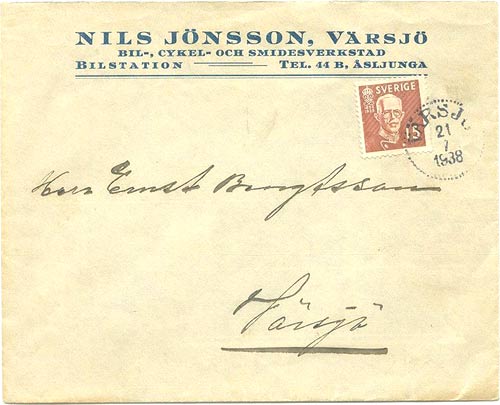 NILS JÖNSSON, VÄRSJÖ
BIL-, CYKEL- OCH SMIDESVERKSTAD
BILSTATION TEL. 44 B, ÅSLJUNGA
SVERIGE
15
VÄRSJÖ
21
7
1938
Herr Ernst Bengtsson
Värsjö